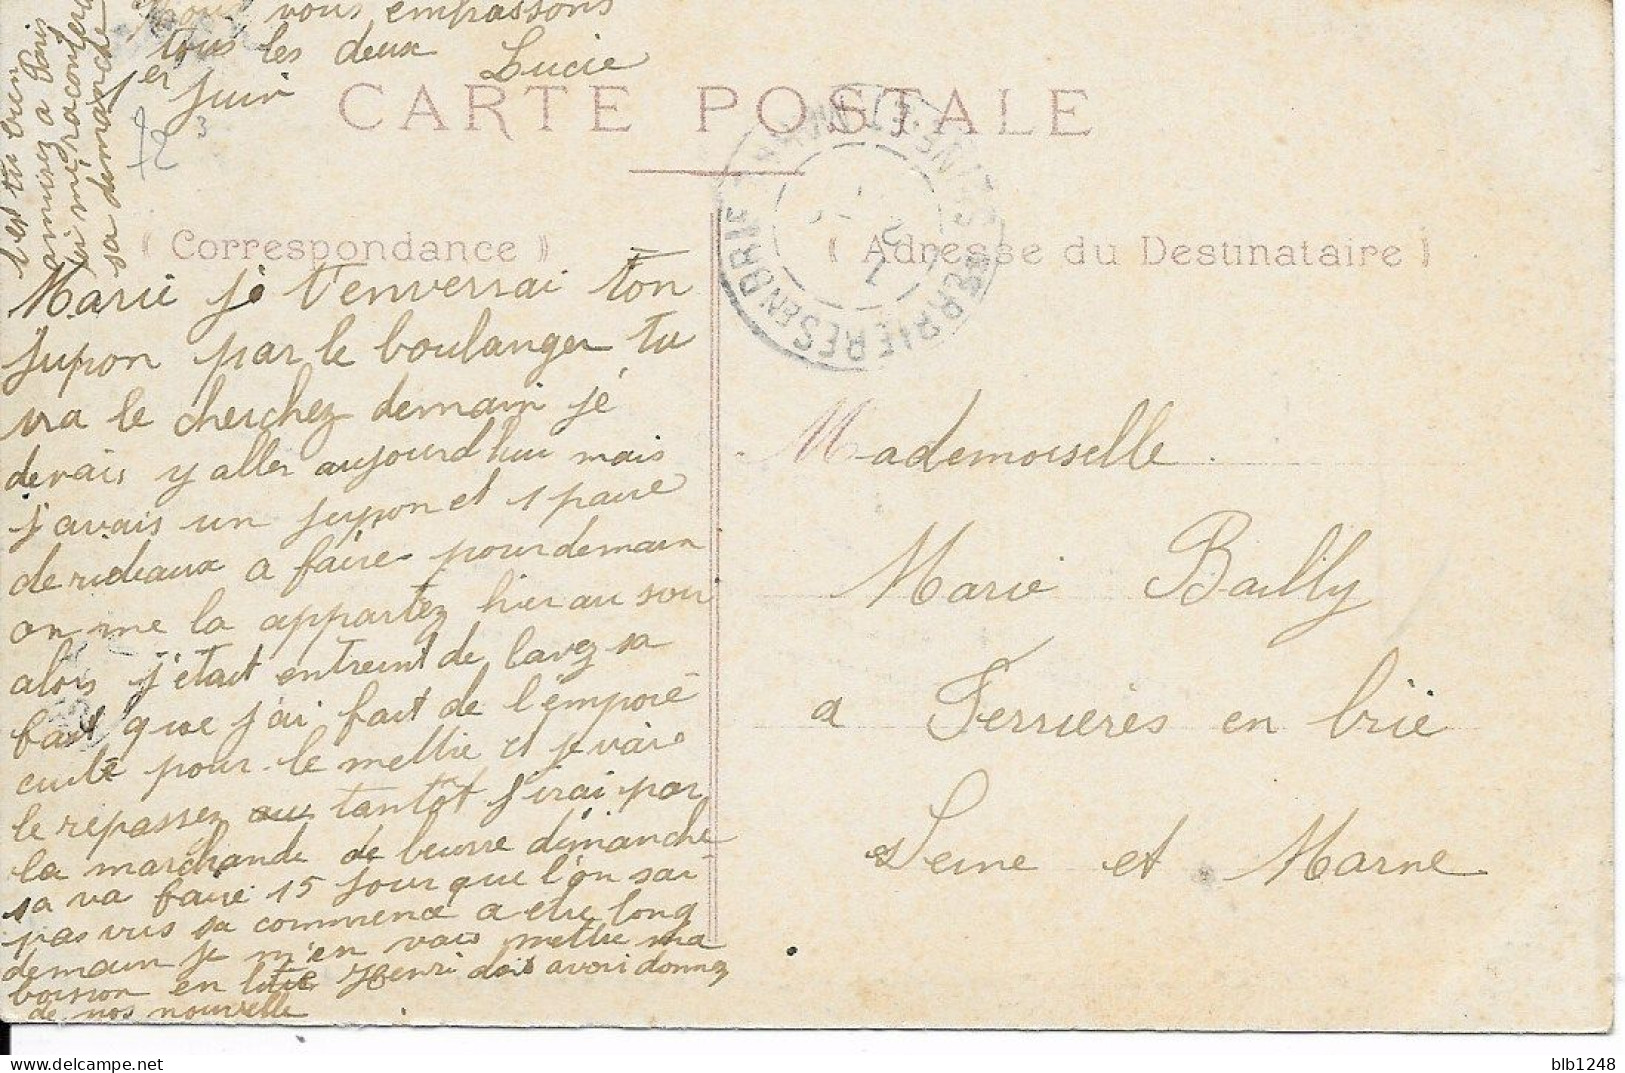 nous vous empassons
tous les deux Lucie
1er Juin
t'es tu bien
amusez a Paris
tu me raconteras
sa dimanche
72
3
CARTE POSTALE
FERRIERES EN BRIE
SEINE-ET-MARNE
( Correspondance )
( Adresse du Destinataire )
Marie je t'enverrai ton
Jupon par le boulanger tu
va le cherchez demain jé
devais y aller aujourd'hui mais
j'avais un jupon et 1 paire
de rideaux a faire pour demain
on me la apportez hier au soir
alors j'etait entreint de lavez sa
fait que j'ai fait de l'emporé
cuite pour le mettre et je vais
le repassez tantôt j'irai par
la marchande de beurre dimanche
sa va faire 15 jour que l'on sai
pas vus sa commence a etre long
demain je m'en vais mettre ma
boisson en litre Henri dois avoir donnez
de nos nouvelle
Mademoiselle
Marie Bailly
a Ferrières en brie
Seine et Marne
blb1248